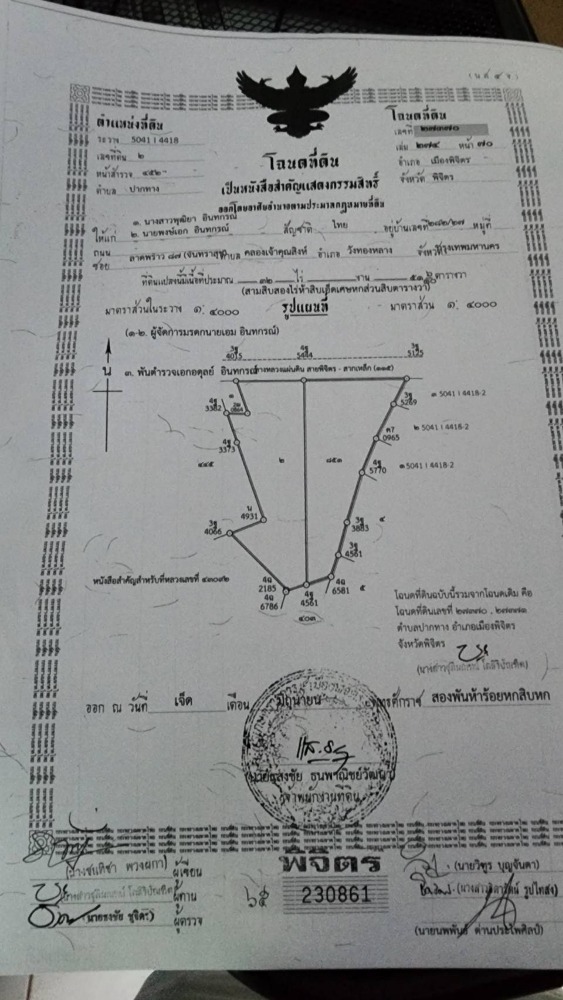 (น.ส. ๔ จ.)
ตำแหน่งที่ดิน
ระวาง 5041 I 4418
เลขที่ดิน ๒
หน้าสำรวจ ๔๕๒
ตำบล ปากทาง
โฉนดที่ดิน
เลขที่
เล่ม ๒๗๔ หน้า ๗๐
อำเภอ เมืองพิจิตร
จังหวัด พิจิตร
โฉนดที่ดิน
เป็นหนังสือสำคัญแสดงกรรมสิทธิ์
ออกโดยอาศัยอำนาจตามประมวลกฎหมายที่ดิน
๑. นางสาวพุฒิยา อินทกรณ์
ให้แก่ ๒. นายพงษ์เอก อินทกรณ์ สัญชาติ ไทย อยู่บ้านเลขที่ ๒๘๒/๒๗ หมู่ที่
ถนน
ซอย ลาดพร้าว ๘๗ (จันทราสุข) ตำบล คลองเจ้าคุณสิงห์ อำเภอ วังทองหลาง จังหวัด กรุงเทพมหานคร
ที่ดินแปลงนี้มีเนื้อที่ประมาณ ๓๒ ไร่ งาน ตารางวา
(สามสิบสองไร่ห้าสิบเอ็ดเศษหกส่วนสิบตารางวา)
มาตราส่วนในระวาง ๑: ๔๐๐๐ รูปแผนที่ มาตราส่วน ๑: ๔๐๐๐
(๑-๒. ผู้จัดการมรดกนายเอม อินทกรณ์)
๓. พันตำรวจเอกอดุลย์ อินทกรณ์
ทางหลวงแผ่นดิน สายพิจิตร - สากเหล็ก (๑๑๕)
น
3ฐ 4015
4ฐ 5444
3ฐ 5125
4ฐ 3382
3ฐ 5269
๑ 5041 I 4418-2
คว 0965
๒ 5041 I 4418-2
4ฐ 3373
๔๔๕
๒
๘๕๓
4ฐ 5770
๑ 5041 I 4418-2
น 4931
3ฐ 4066
3ฐ 3883
๔
3ฐ 4581
หนังสือสำคัญสำหรับที่หลวงเลขที่ ๔๓๐๙๒
4ฉ 2185
4ฉ 6786
4ฐ 4561
4ฉ 6581
๕
๔๐๓
โฉนดที่ดินฉบับนี้รวมจากโฉนดเดิม คือ
โฉนดที่ดินเลขที่ ๒๗๗๑๐ , ๒๗๗๗๑
ตำบลปากทาง อำเภอเมืองพิจิตร
จังหวัดพิจิตร
ออก ณ วันที่ เจ็ด เดือน มิถุนายน พุทธศักราช สองพันห้าร้อยหกสิบหก
เจ้าพนักงานที่ดิน
ผู้เขียน
ผู้ทาน
นายธงชัย ผู้ตรวจ
พิจิตร
230861
๖๕
(นายวิฑูร บุญจันดา)